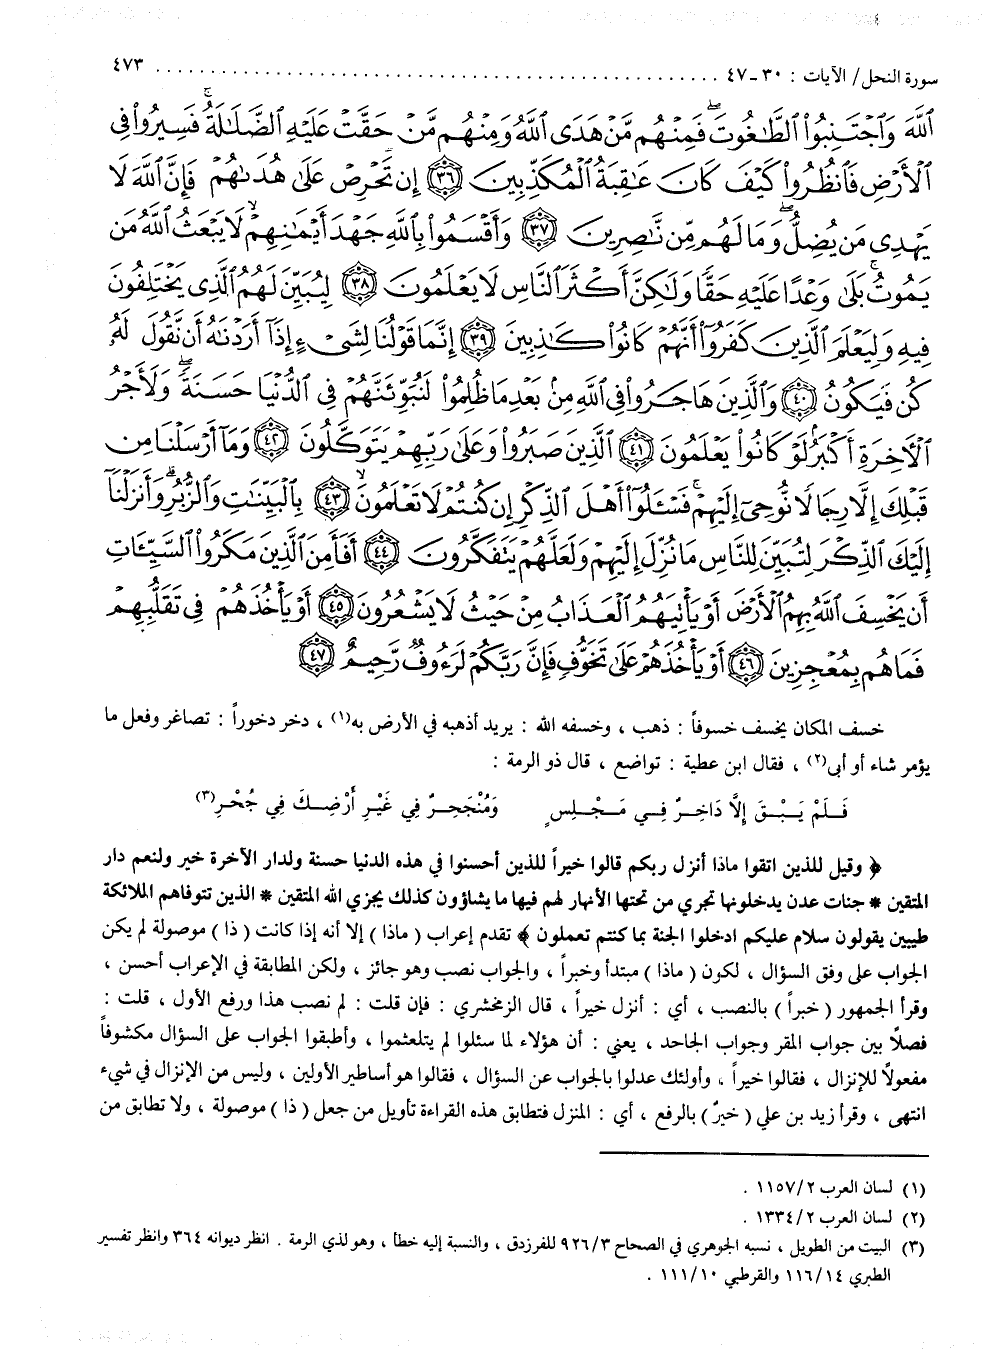 سورة النحل / الآيات : ٣٠ - ٤٧ ........................................................ ٤٧٣
ٱللَّهَ وَٱجْتَنِبُوا۟ ٱلطَّٰغُوتَ ۖ فَمِنْهُم مَّنْ هَدَى ٱللَّهُ وَمِنْهُم مَّنْ حَقَّتْ عَلَيْهِ ٱلضَّلَٰلَةُ ۚ فَسِيرُوا۟ فِى
ٱلْأَرْضِ فَٱنظُرُوا۟ كَيْفَ كَانَ عَٰقِبَةُ ٱلْمُكَذِّبِينَ ﴿٣٦﴾ إِن تَحْرِصْ عَلَىٰ هُدَىٰهُمْ فَإِنَّ ٱللَّهَ لَا
يَهْدِى مَن يُضِلُّ ۖ وَمَا لَهُم مِّن نَّٰصِرِينَ ﴿٣٧﴾ وَأَقْسَمُوا۟ بِٱللَّهِ جَهْدَ أَيْمَٰنِهِمْ ۙ لَا يَبْعَثُ ٱللَّهُ مَن
يَمُوتُ ۚ بَلَىٰ وَعْدًا عَلَيْهِ حَقًّا وَلَٰكِنَّ أَكْثَرَ ٱلنَّاسِ لَا يَعْلَمُونَ ﴿٣٨﴾ لِيُبَيِّنَ لَهُمُ ٱلَّذِى يَخْتَلِفُونَ
فِيهِ وَلِيَعْلَمَ ٱلَّذِينَ كَفَرُوٓا۟ أَنَّهُمْ كَانُوا۟ كَٰذِبِينَ ﴿٣٩﴾ إِنَّمَا قَوْلُنَا لِشَىْءٍ إِذَآ أَرَدْنَٰهُ أَن نَّقُولَ لَهُۥ
كُن فَيَكُونُ ﴿٤٠﴾ وَٱلَّذِينَ هَاجَرُوا۟ فِى ٱللَّهِ مِنۢ بَعْدِ مَا ظُلِمُوا۟ لَنُبَوِّئَنَّهُمْ فِى ٱلدُّنْيَا حَسَنَةً ۖ وَلَأَجْرُ
ٱلْأَخِرَةِ أَكْبَرُ ۚ لَوْ كَانُوا۟ يَعْلَمُونَ ﴿٤١﴾ ٱلَّذِينَ صَبَرُوا۟ وَعَلَىٰ رَبِّهِمْ يَتَوَكَّلُونَ ﴿٤٢﴾ وَمَآ أَرْسَلْنَا مِن
قَبْلِكَ إِلَّا رِجَالًا نُّوحِىٓ إِلَيْهِمْ ۚ فَسْـَٔلُوٓا۟ أَهْلَ ٱلذِّكْرِ إِن كُنتُمْ لَا تَعْلَمُونَ ۙ ﴿٤٣﴾ بِٱلْبَيِّنَٰتِ وَٱلزُّبُرِ ۗ وَأَنزَلْنَآ
إِلَيْكَ ٱلذِّكْرَ لِتُبَيِّنَ لِلنَّاسِ مَا نُزِّلَ إِلَيْهِمْ وَلَعَلَّهُمْ يَتَفَكَّرُونَ ﴿٤٤﴾ أَفَأَمِنَ ٱلَّذِينَ مَكَرُوا۟ ٱلسَّيِّـَٔاتِ
أَن يَخْسِفَ ٱللَّهُ بِهِمُ ٱلْأَرْضَ أَوْ يَأْتِيَهُمُ ٱلْعَذَابُ مِنْ حَيْثُ لَا يَشْعُرُونَ ﴿٤٥﴾ أَوْ يَأْخُذَهُمْ فِى تَقَلُّبِهِمْ
فَمَا هُم بِمُعْجِزِينَ ﴿٤٦﴾ أَوْ يَأْخُذَهُمْ عَلَىٰ تَخَوُّفٍ فَإِنَّ رَبَّكُمْ لَرَءُوفٌ رَّحِيمٌ ﴿٤٧﴾
خسف المكان يخسف خسوفاً : ذهب ، وخسفه الله : يريد أذهبه في الأرض به(١) ، دخر دخوراً : تصاغر وفعل ما
يؤمر شاء أو أبى(٢) ، فقال ابن عطية : تواضع ، قال ذو الرمة :
فَلَمْ يَبْقَ إِلَّا دَاخِرٌ فِي مَجْلِسٍ وَمُنْجَحِرٌ فِي غَيْرِ أَرْضِكَ فِي جُحْرِ(٣)
﴿ وقيل للذين اتقوا ماذا أنزل ربكم قالوا خيراً للذين أحسنوا في هذه الدنيا حسنة ولدار الآخرة خير ولنعم دار
المتقين * جنات عدن يدخلونها تجري من تحتها الأنهار لهم فيها ما يشاؤون كذلك يجزي الله المتقين * الذين تتوفاهم الملائكة
طيبين يقولون سلام عليكم ادخلوا الجنة بما كنتم تعملون ﴾ تقدم إعراب ( ماذا ) إلا أنه إذا كانت ( ذا ) موصولة لم يكن
الجواب على وفق السؤال ، لكون ( ماذا ) مبتدأ وخبراً ، والجواب نصب وهو جائز ، ولكن المطابقة في الإعراب أحسن ،
وقرأ الجمهور ( خبراً ) بالنصب ، أي : أنزل خيراً ، قال الزمخشري : فإن قلت : لم نصب هذا ورفع الأول ، قلت :
فصلاً بين جواب المقر وجواب الجاحد ، يعني : أن هؤلاء لما سئلوا لم يتلعثموا ، وأطبقوا الجواب على السؤال مكشوفاً
مفعولاً للإنزال ، فقالوا خيراً ، وأولئك عدلوا بالجواب عن السؤال ، فقالوا هو أساطير الأولين ، وليس من الإنزال في شيء
انتهى ، وقرأ زيد بن علي ( خيرٌ ) بالرفع ، أي : المنزل فتطابق هذه القراءة تأويل من جعل ( ذا ) موصولة ، ولا تطابق من
(١) لسان العرب ٢/ ١١٥٧ .
(٢) لسان العرب ٢/ ١٣٣٤ .
(٣) البيت من الطويل ، نسبه الجوهري في الصحاح ٣/ ٩٢٦ للفرزدق ، والنسبة إليه خطأ ، وهو لذي الرمة . انظر ديوانه ٣٦٤ وانظر تفسير
الطبري ١٤/ ١١٦ والقرطبي ١٠/ ١١١ .